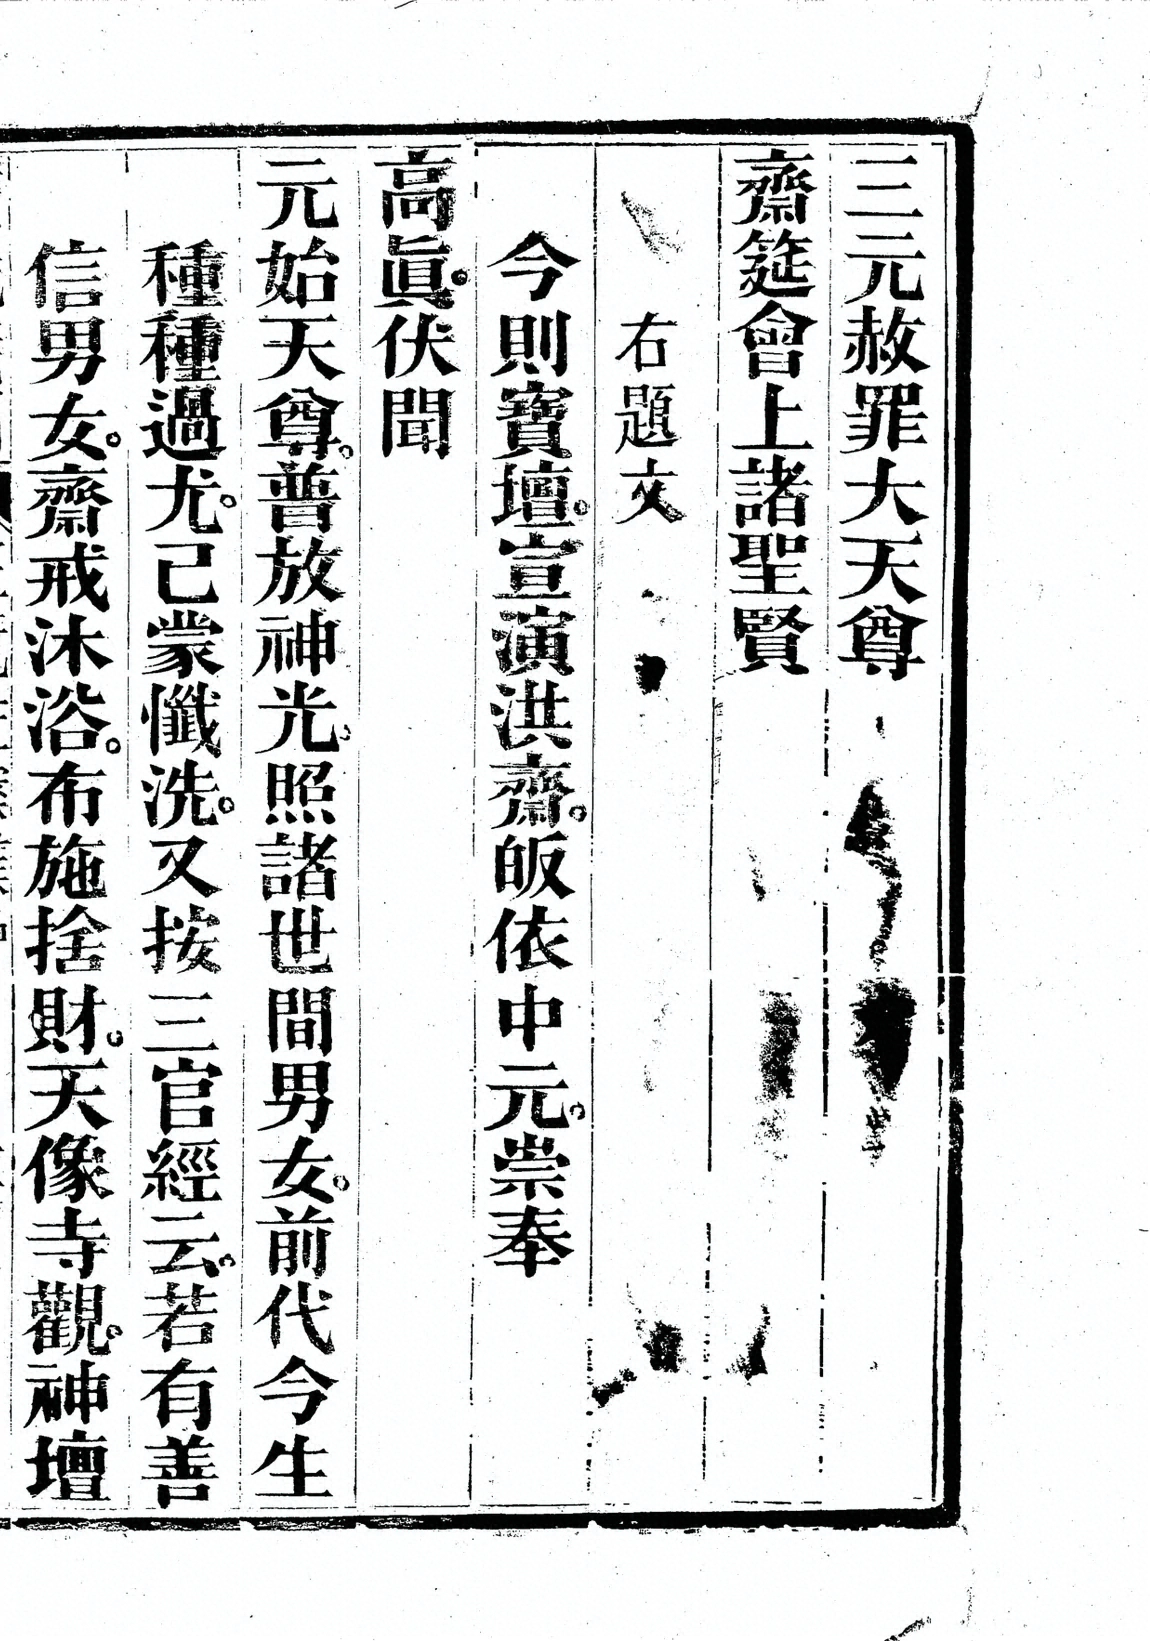 三元赦罪大天尊
齋筵會上諸聖賢
右題文
今則寶壇。宣演洪齋。皈依中元。崇奉
高眞。伏聞
元始天尊。普放神光。照諸世間男女。前代今生
種種過尤。已蒙懺洗。又按三官經云。若有善
信男女。齋戒沐浴。布施捨財。天像寺觀。神壇